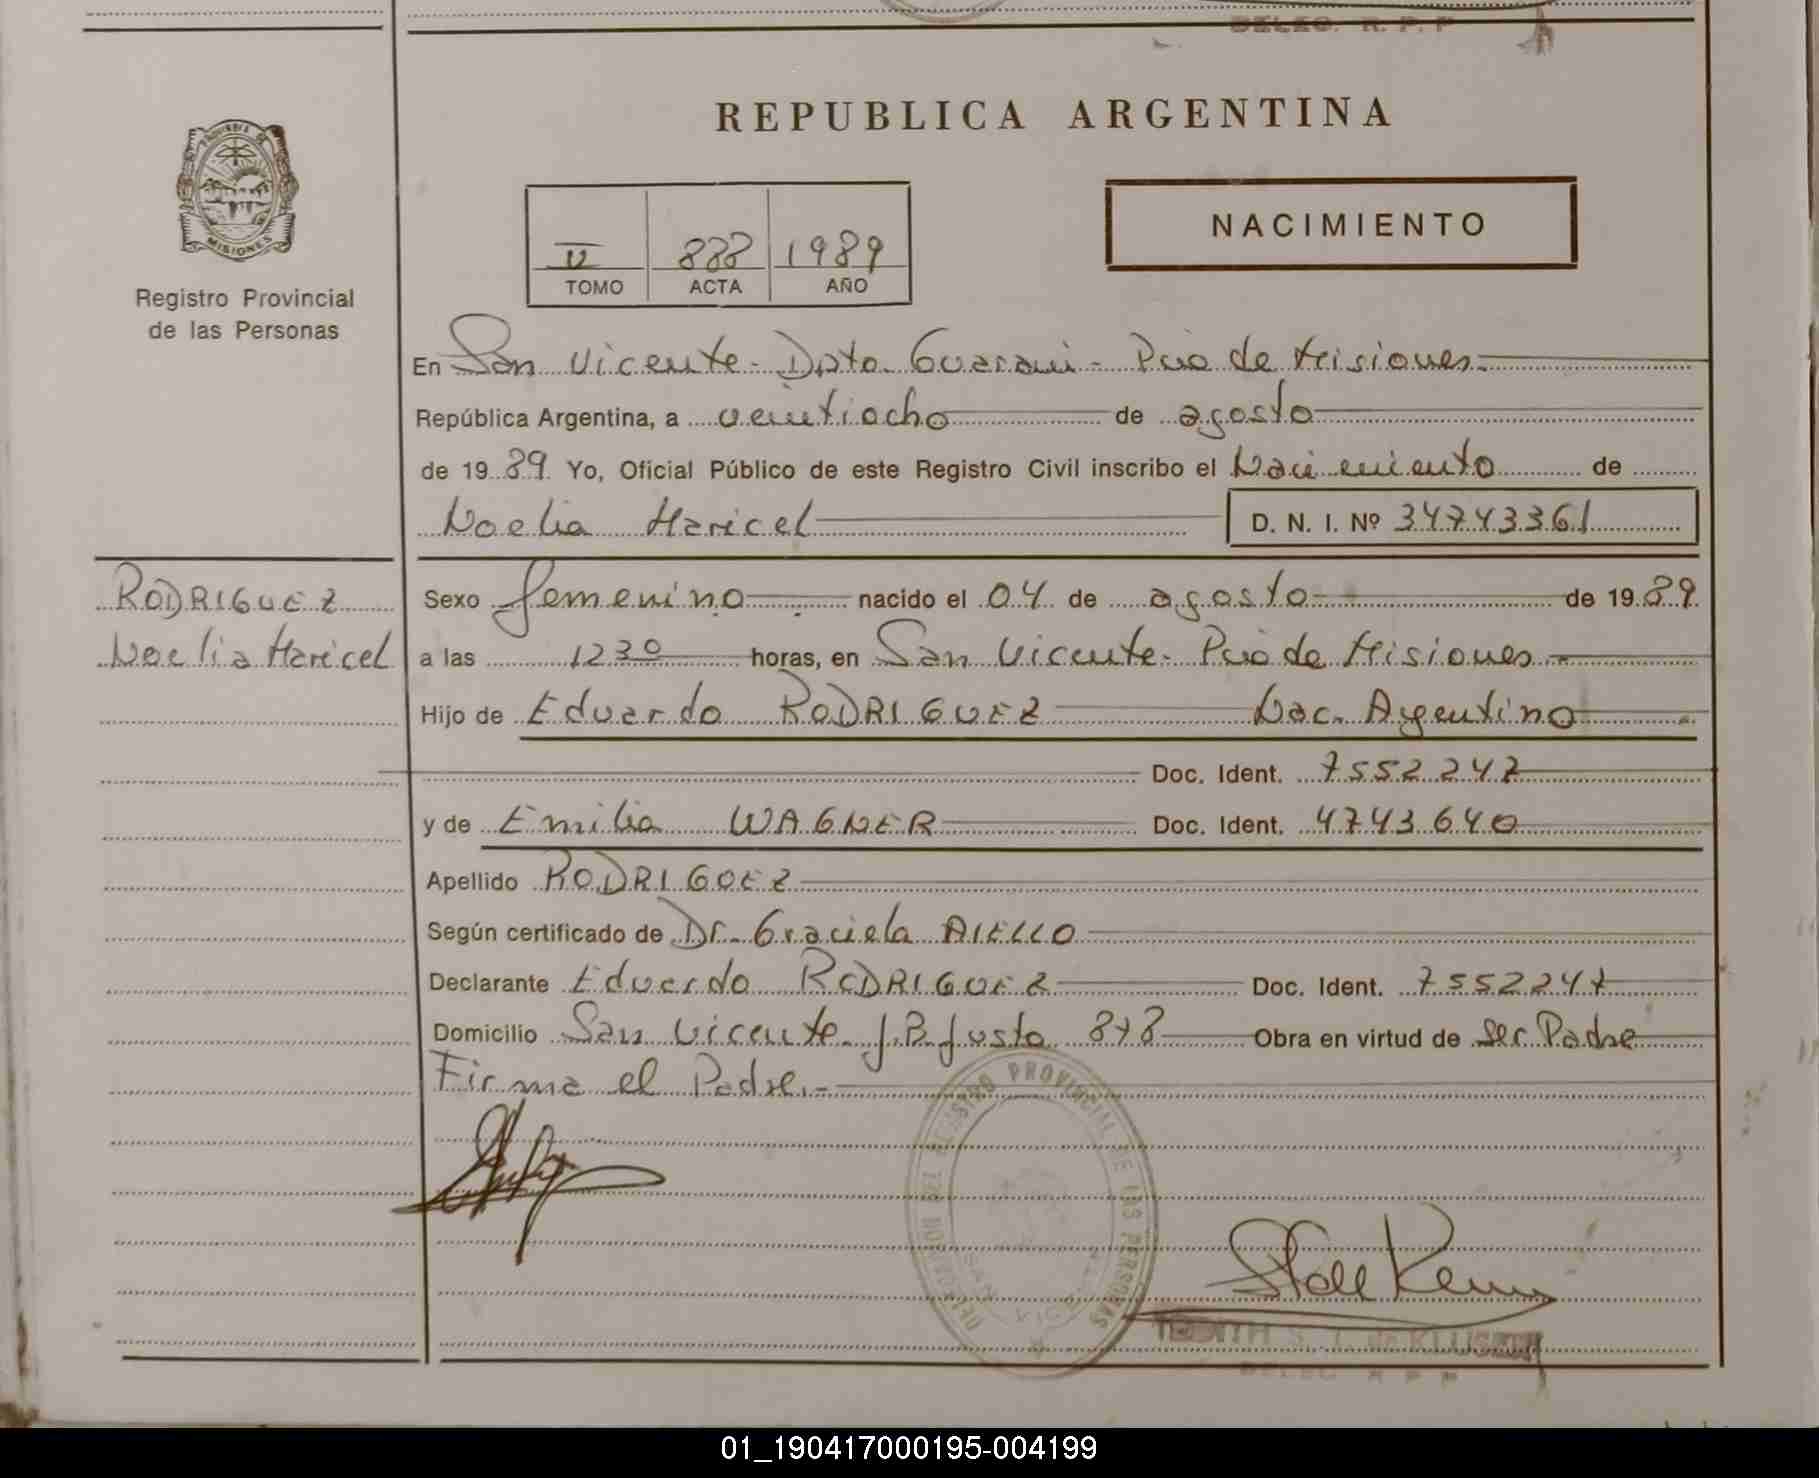 DELEG. R. P. P
REPUBLICA ARGENTINA
PROVINCIA DE
MISIONES
Registro Provincial
de las Personas
II 888 1989
TOMO ACTA AÑO
NACIMIENTO
En San Vicente - Dpto. Guarani - Pcia de Misiones.
República Argentina, a veintiocho de agosto
de 1989. Yo, Oficial Público de este Registro Civil inscribo el Nacimiento de
Noelia Maricel D. N. I. Nº 34743361
RODRIGUEZ
Noelia Maricel
Sexo femenino nacido el 04 de agosto de 1989
a las 1230 horas, en San Vicente - Pcia de Misiones.-
Hijo de Eduardo RODRIGUEZ Nac. Argentino
Doc. Ident. 7552247
y de Emilia WAGNER Doc. Ident. 4743640
Apellido RODRIGUEZ
Según certificado de Dr. Graciela AIELLO
Declarante Eduardo RODRIGUEZ Doc. Ident. 7552247
Domicilio San Vicente J.B. Justo 878 Obra en virtud de ser Padre
Firma el Padre.-
DELEGACION DEL REGISTRO PROVINCIAL DE LAS PERSONAS
SAN VICENTE
DELEG R P P
01_190417000195-004199